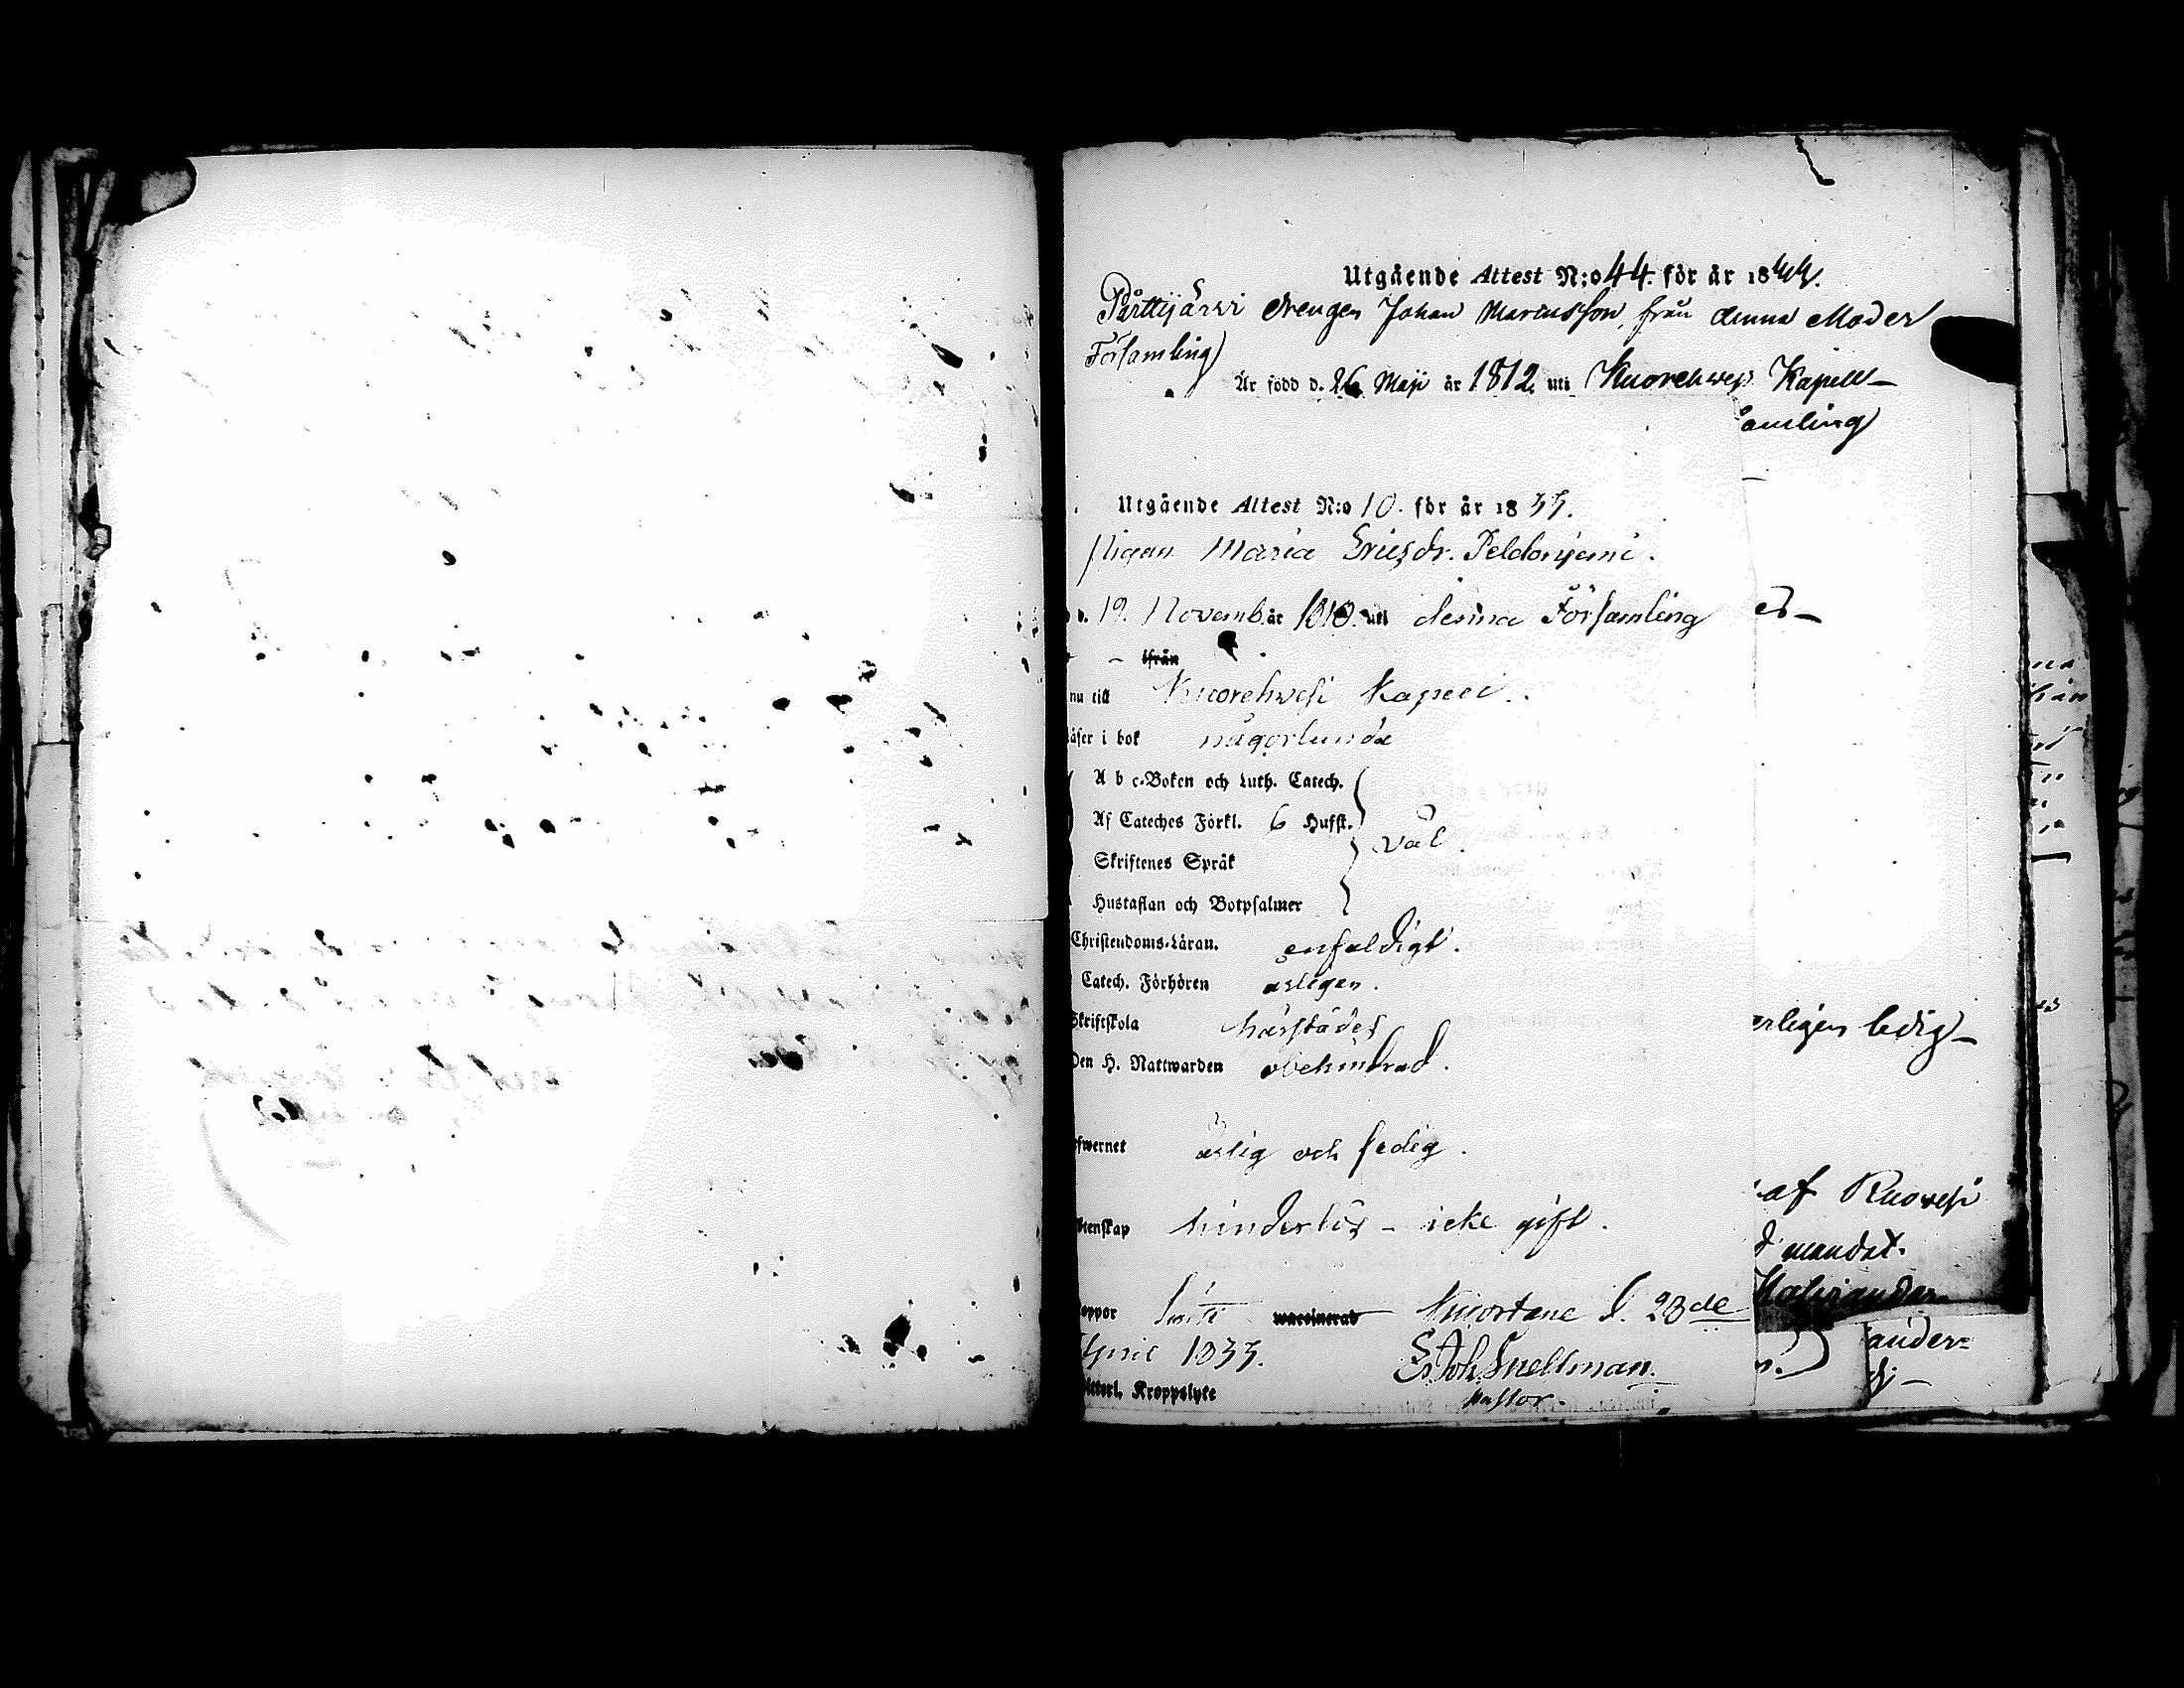 Utgående Attest N:o 44. för år 1844.
Pärttijärvi drengen Johan Marcusson, från denna Moder
Församling
Är född d. 26 Maji år 1812 uti Kuorehwesi Kapell-
amling
Utgående Attest N:o 10. för år 1833.
pigan Maria Ericsdr. Peldoniemi.
d. 19. Novemb. år 1810. uti denna Församling
- ifrån
nu till Kuorehwesi Kapell.
läser i bok någorlunda
A b c-Boken och Luth. Catech.
Af Cateches Förkl. 6 Hufst.
väl.
Skriftenes Språk
Hustaflan och Botpsalmer
Christendoms-Läran. enfaldigt.
Catech. Förhören årligen.
Skriftskola härstädes
Den H. Nattwarden obehindrad.
efwernet ärlig och fredig.
btenskap hinderlös - icke gift.
oppor haft waccinerad Kuortane d. 28de
April 1833. Joh. Snellman.
Kroppslyte Pastor.
erligen ledig-
af Ruovesi
mandat.
ander-